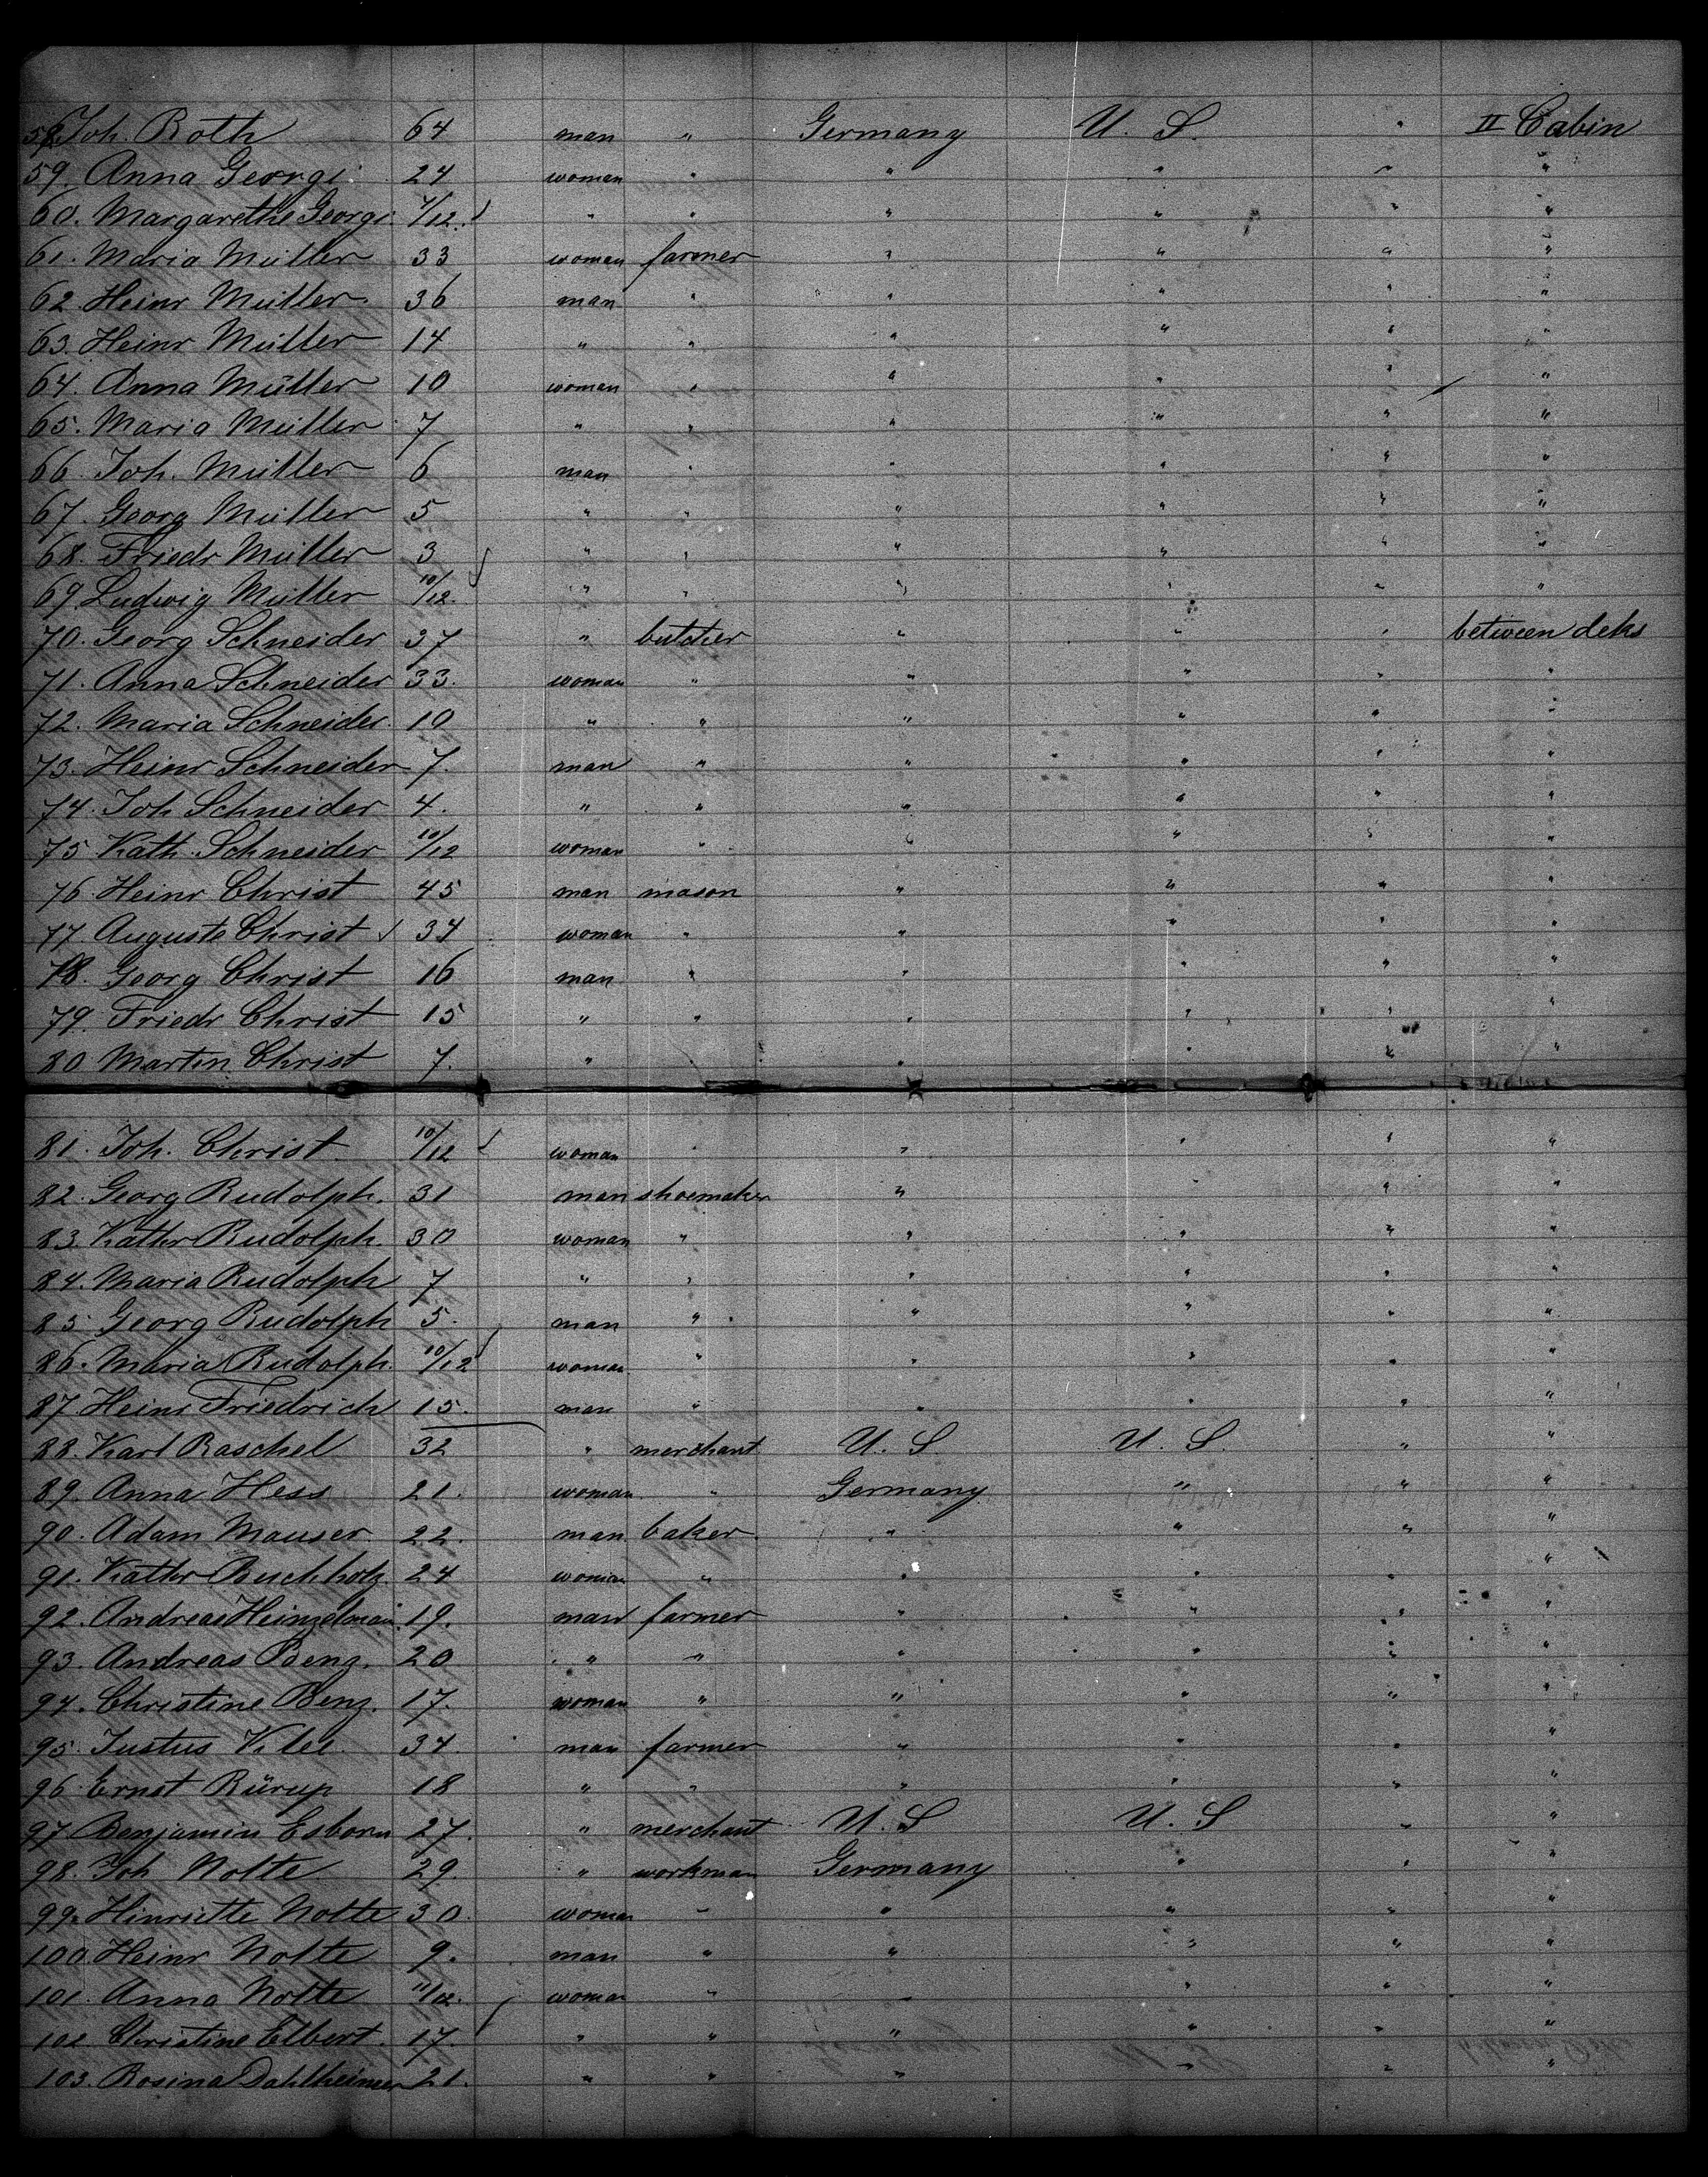 58. Joh. Roth 64 man " Germany U. S. " II Cabin
59. Anna Georgi 24 woman " " " " "
60. Margarethe Georgi 7/12 " " " " " "
61. Maria Müller 33 woman farmer " " " "
62 Heinr Müller 36 man " " " " "
63. Heinr Müller 14 " " " " " "
64. Anna Müller 10 woman " " " " "
65. Maria Müller 7 " " " " " "
66. Joh. Müller 6 man " " " " "
67. Georg Müller 5 " " " " " "
68. Friedr Müller 3 " " " " " "
69. Ludwig Müller 10/12. " " " " " "
70. Georg Schneider 37 " butcher " " " between deks
71. Anna Schneider 33. woman " " " " "
72. Maria Schneider. 10 " " " " " "
73. Heinr Schneider 7. man " " " " "
74. Joh Schneider 4. " " " " " "
75 Kath. Schneider 10/12 woman " " " " "
76. Heinr Christ 45 man mason " " " "
77. Auguste Christ 34 woman " " " " "
78. Georg Christ 16 man " " " " "
79. Friedr Christ 15 " " " " " "
80 Martin Christ 7. " " " " "
81. Joh. Christ 10/12 woman " " " " "
82. Georg Rudolph. 31 man shoemaker " " " "
83. Kathr Rudolph. 30 woman " " " " "
84. Maria Rudolph 7 " " " " " "
85 Georg Rudolph 5. man " " " " "
86. Maria Rudolph. 10/12 woman " " " " "
87 Heinr Friedrich 15. man " " " " "
88. Karl Raschel 32 " merchant U. S U. S. " "
89. Anna Hess 21. woman " Germany " " "
90. Adam Mauser 22. man baker " " " "
91. Kathr Buchholz 24 woman " " " " "
92. Andreas Heinzelman 19. man farmer " " " "
93. Andreas Benz. 20 " " " " " "
94. Christine Benz. 17. woman " " " " "
95. Justus Klee 34. man farmer " " " "
96. Ernst Rürup 18 " " " " " "
97 Benjamin Esborn 27. " merchant U. S U. S " "
98. Joh Nolte 29. " workman Germany " " "
99. Hinriette Nolte 30. woman " " " " "
100. Heinr Nolte 9. man " " " " "
101. Anna Nolte 11/12. woman " " " " "
102 Christine Elbert. 17. " " " " " "
103. Rosina Dahlheimer 21. " " " " " "